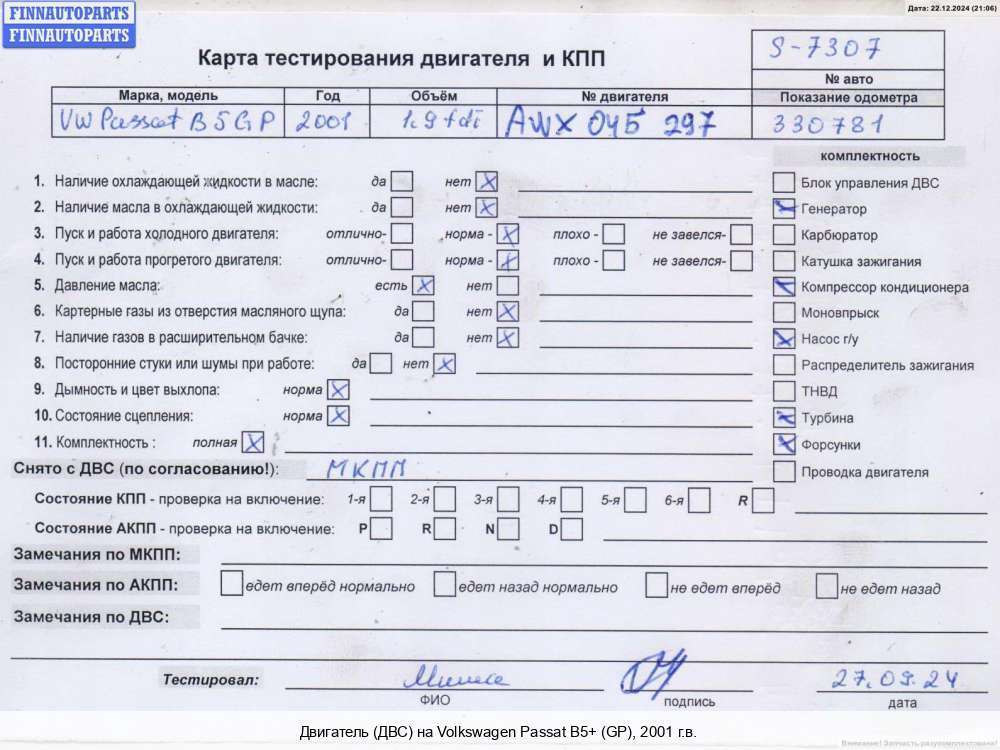 FINNAUTOPARTS
FINNAUTOPARTS
Дата: 22.12.2024 (21:06)
Карта тестирования двигателя и КПП
S-7307
№ авто
Марка, модель Год Объём № двигателя Показание одометра
VW Passat B5GP 2001 1.9 tdi AWX 045 297 330781
комплектность
1. Наличие охлаждающей жидкости в масле: да нет Блок управления ДВС
2. Наличие масла в охлаждающей жидкости: да нет Генератор
3. Пуск и работа холодного двигателя: отлично- норма - плохо - не завелся- Карбюратор
4. Пуск и работа прогретого двигателя: отлично- норма - плохо - не завелся- Катушка зажигания
5. Давление масла: есть нет Компрессор кондиционера
6. Картерные газы из отверстия масляного щупа: да нет Моновпрыск
7. Наличие газов в расширительном бачке: да нет Насос г/у
8. Посторонние стуки или шумы при работе: да нет Распределитель зажигания
9. Дымность и цвет выхлопа: норма ТНВД
10. Состояние сцепления: норма Турбина
11. Комплектность : полная Форсунки
Снято с ДВС (по согласованию!): МКПП Проводка двигателя
Состояние КПП - проверка на включение: 1-я 2-я 3-я 4-я 5-я 6-я R
Состояние АКПП - проверка на включение: P R N D
Замечания по МКПП:
Замечания по АКПП: едет вперёд нормально едет назад нормально не едет вперёд не едет назад
Замечания по ДВС:
Тестировал: 27.09.24
ФИО подпись дата
Двигатель (ДВС) на Volkswagen Passat B5+ (GP), 2001 г.в.
Внимание! Запчасть разукомплектована!